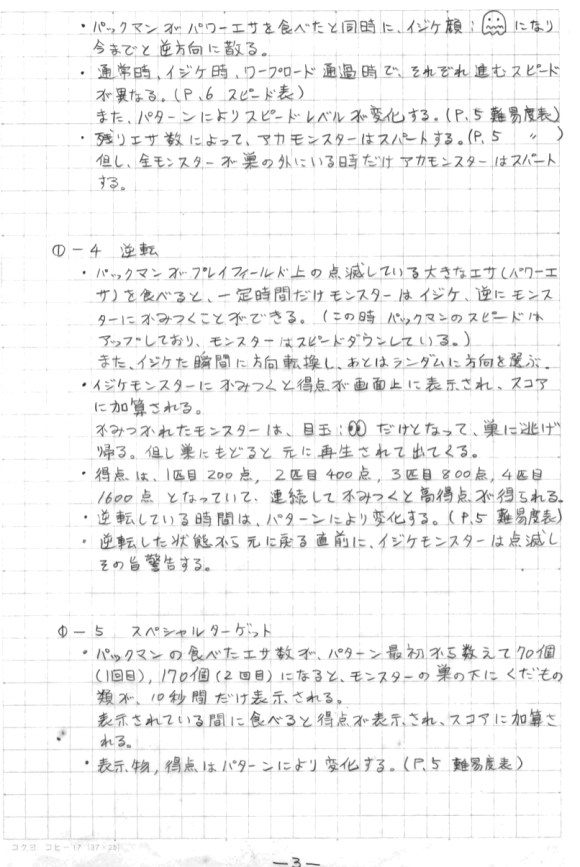 ・パックマンがパワーエサを食べたと同時に、イジケ顔: になり
今までと逆方向に散る。
・通常時、イジケ時、ワープロード通過時で、それぞれ進むスピード
が異なる。(P.6 スピード表)
また、パターンによりスピードレベルが変化する。(P.5 難易度表)
・残りエサ数によって、アカモンスターはスパートする。(P.5 〃 )
但し、全モンスターが巣の外にいる時だけアカモンスターはスパート
する。
①-4 逆転
・パックマンがプレイフィールド上の点滅している大きなエサ(パワーエ
サ)を食べると、一定時間だけモンスターはイジケ、逆にモンス
ターにかみつくことができる。(この時パックマンのスピードは
アップしており、モンスターはスピードダウンしている。)
また、イジケた瞬間に方向転換し、あとはランダムに方向を選ぶ。
・イジケモンスターにかみつくと得点が画面上に表示され、スコア
に加算される。
かみつかれたモンスターは、目玉: だけとなって、巣に逃げ
帰る。但し巣にもどると元に再生されて出てくる。
・得点は、1匹目200点, 2匹目400点, 3匹目800点, 4匹目
1600点となっていて、連続してかみつくと高得点が得られる。
・逆転している時間は、パターンにより変化する。(P.5 難易度表)
・逆転した状態から元に戻る直前に、イジケモンスターは点滅し
その旨警告する。
①-5 スペシャルターゲット
・パックマンの食べたエサ数が、パターン最初から数えて70個
(1回目), 170個(2回目)になると、モンスターの巣の下にくだもの
類が、10秒間だけ表示される。
表示されている間に食べると得点が表示され、スコアに加算さ
れる。
・表示物, 得点はパターンにより変化する。(P.5 難易度表)
コクヨ コピーリア (37×26)
-3-